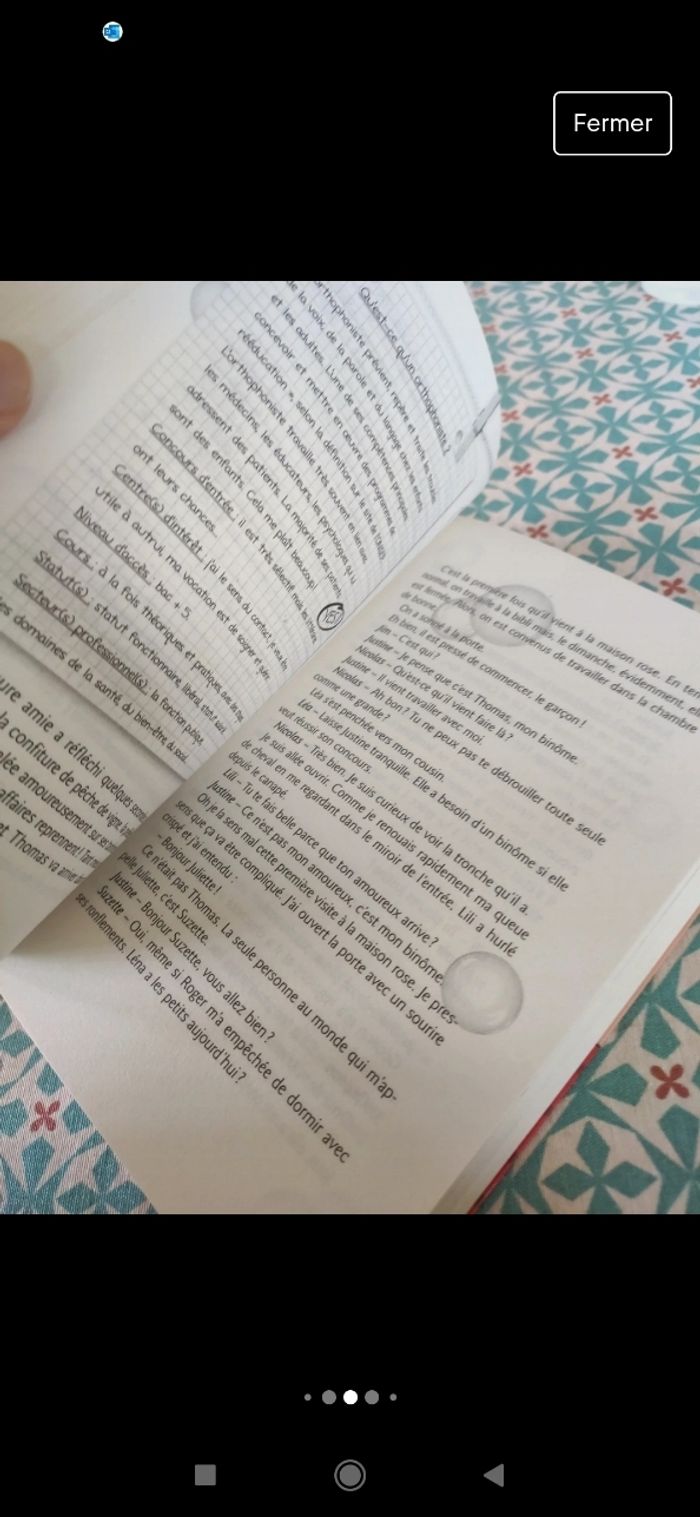 Fermer
Qu'est-ce qu'un orthophoniste?
orthophoniste prévient, repère et traite les troubles
de la voix, de la parole et du langage chez les enfants
et les adultes. L'une de ses compétences principales
concevoir et mettre en œuvre des programmes de
rééducation », selon la définition sur le site de l'ONISEP.
L'orthophoniste travaille très souvent en lien avec
les médecins, les éducateurs, les psychologues qui lui
adressent des patients. La majorité de ses patients
sont des enfants. Cela me plaît beaucoup!
Concours d'entrée : il est très sélectif mais
ont leurs chances.
YES!
Centre(s) d'intérêt : j'ai le sens du contact, je veux être
utile à autrui, ma vocation est de soigner et
Niveau d'accès : bac + 5.
Cours : à la fois théoriques et pratiques avec
Statut(s) : statut fonctionnaire, libéral, statut
Secteur(s) professionnel(s) : la fonction publique,
les domaines de la santé, du bien-être, du social
ure amie a réfléchi quelques
la confiture de pêche de vigne
lée amoureusement sur
affaires reprennent!
et Thomas va
C'est la première fois qu'il vient à la maison rose. En
normal, on travaille à la bibli mais, le dimanche, évidemment, elle
est fermée. Alors, on est convenus de travailler dans la chambre
de bonne.
On a sonné à la porte.
Eh ben, il est pressé de commencer, le garçon !
Jim – C'est qui ?
Justine – Je pense que c'est Thomas, mon binôme.
Nicolas – Qu'est-ce qu'il vient faire là ?
Justine – Il vient travailler avec moi.
Nicolas – Ah bon ? Tu ne peux pas te débrouiller toute seule
comme une grande ?
Léa s'est penchée vers mon cousin.
Léa – Laisse Justine tranquille. Elle a besoin d'un binôme si elle
veut réussir son concours.
Nicolas – Très bien. Je suis curieux de voir la tronche qu'il a.
Je suis allée ouvrir. Comme je renouais rapidement ma queue
de cheval en me regardant dans le miroir de l'entrée, Lili a hurlé
depuis le canapé.
Lili – Tu te fais belle parce que ton amoureux arrive ?
Justine – Ce n'est pas mon amoureux, c'est mon binôme.
Oh je la sens mal cette première visite à la maison rose. Je pres-
sens que ça va être compliqué. J'ai ouvert la porte avec un sourire
crispé et j'ai entendu :
– Bonjour Juliette !
Ce n'était pas Thomas. La seule personne au monde qui m'ap-
pelle Juliette, c'est Suzette.
Justine – Bonjour Suzette, vous allez bien ?
Suzette – Oui, même si Roger m'a empêchée de dormir avec
ses ronflements. Léna a les petits aujourd'hui ?